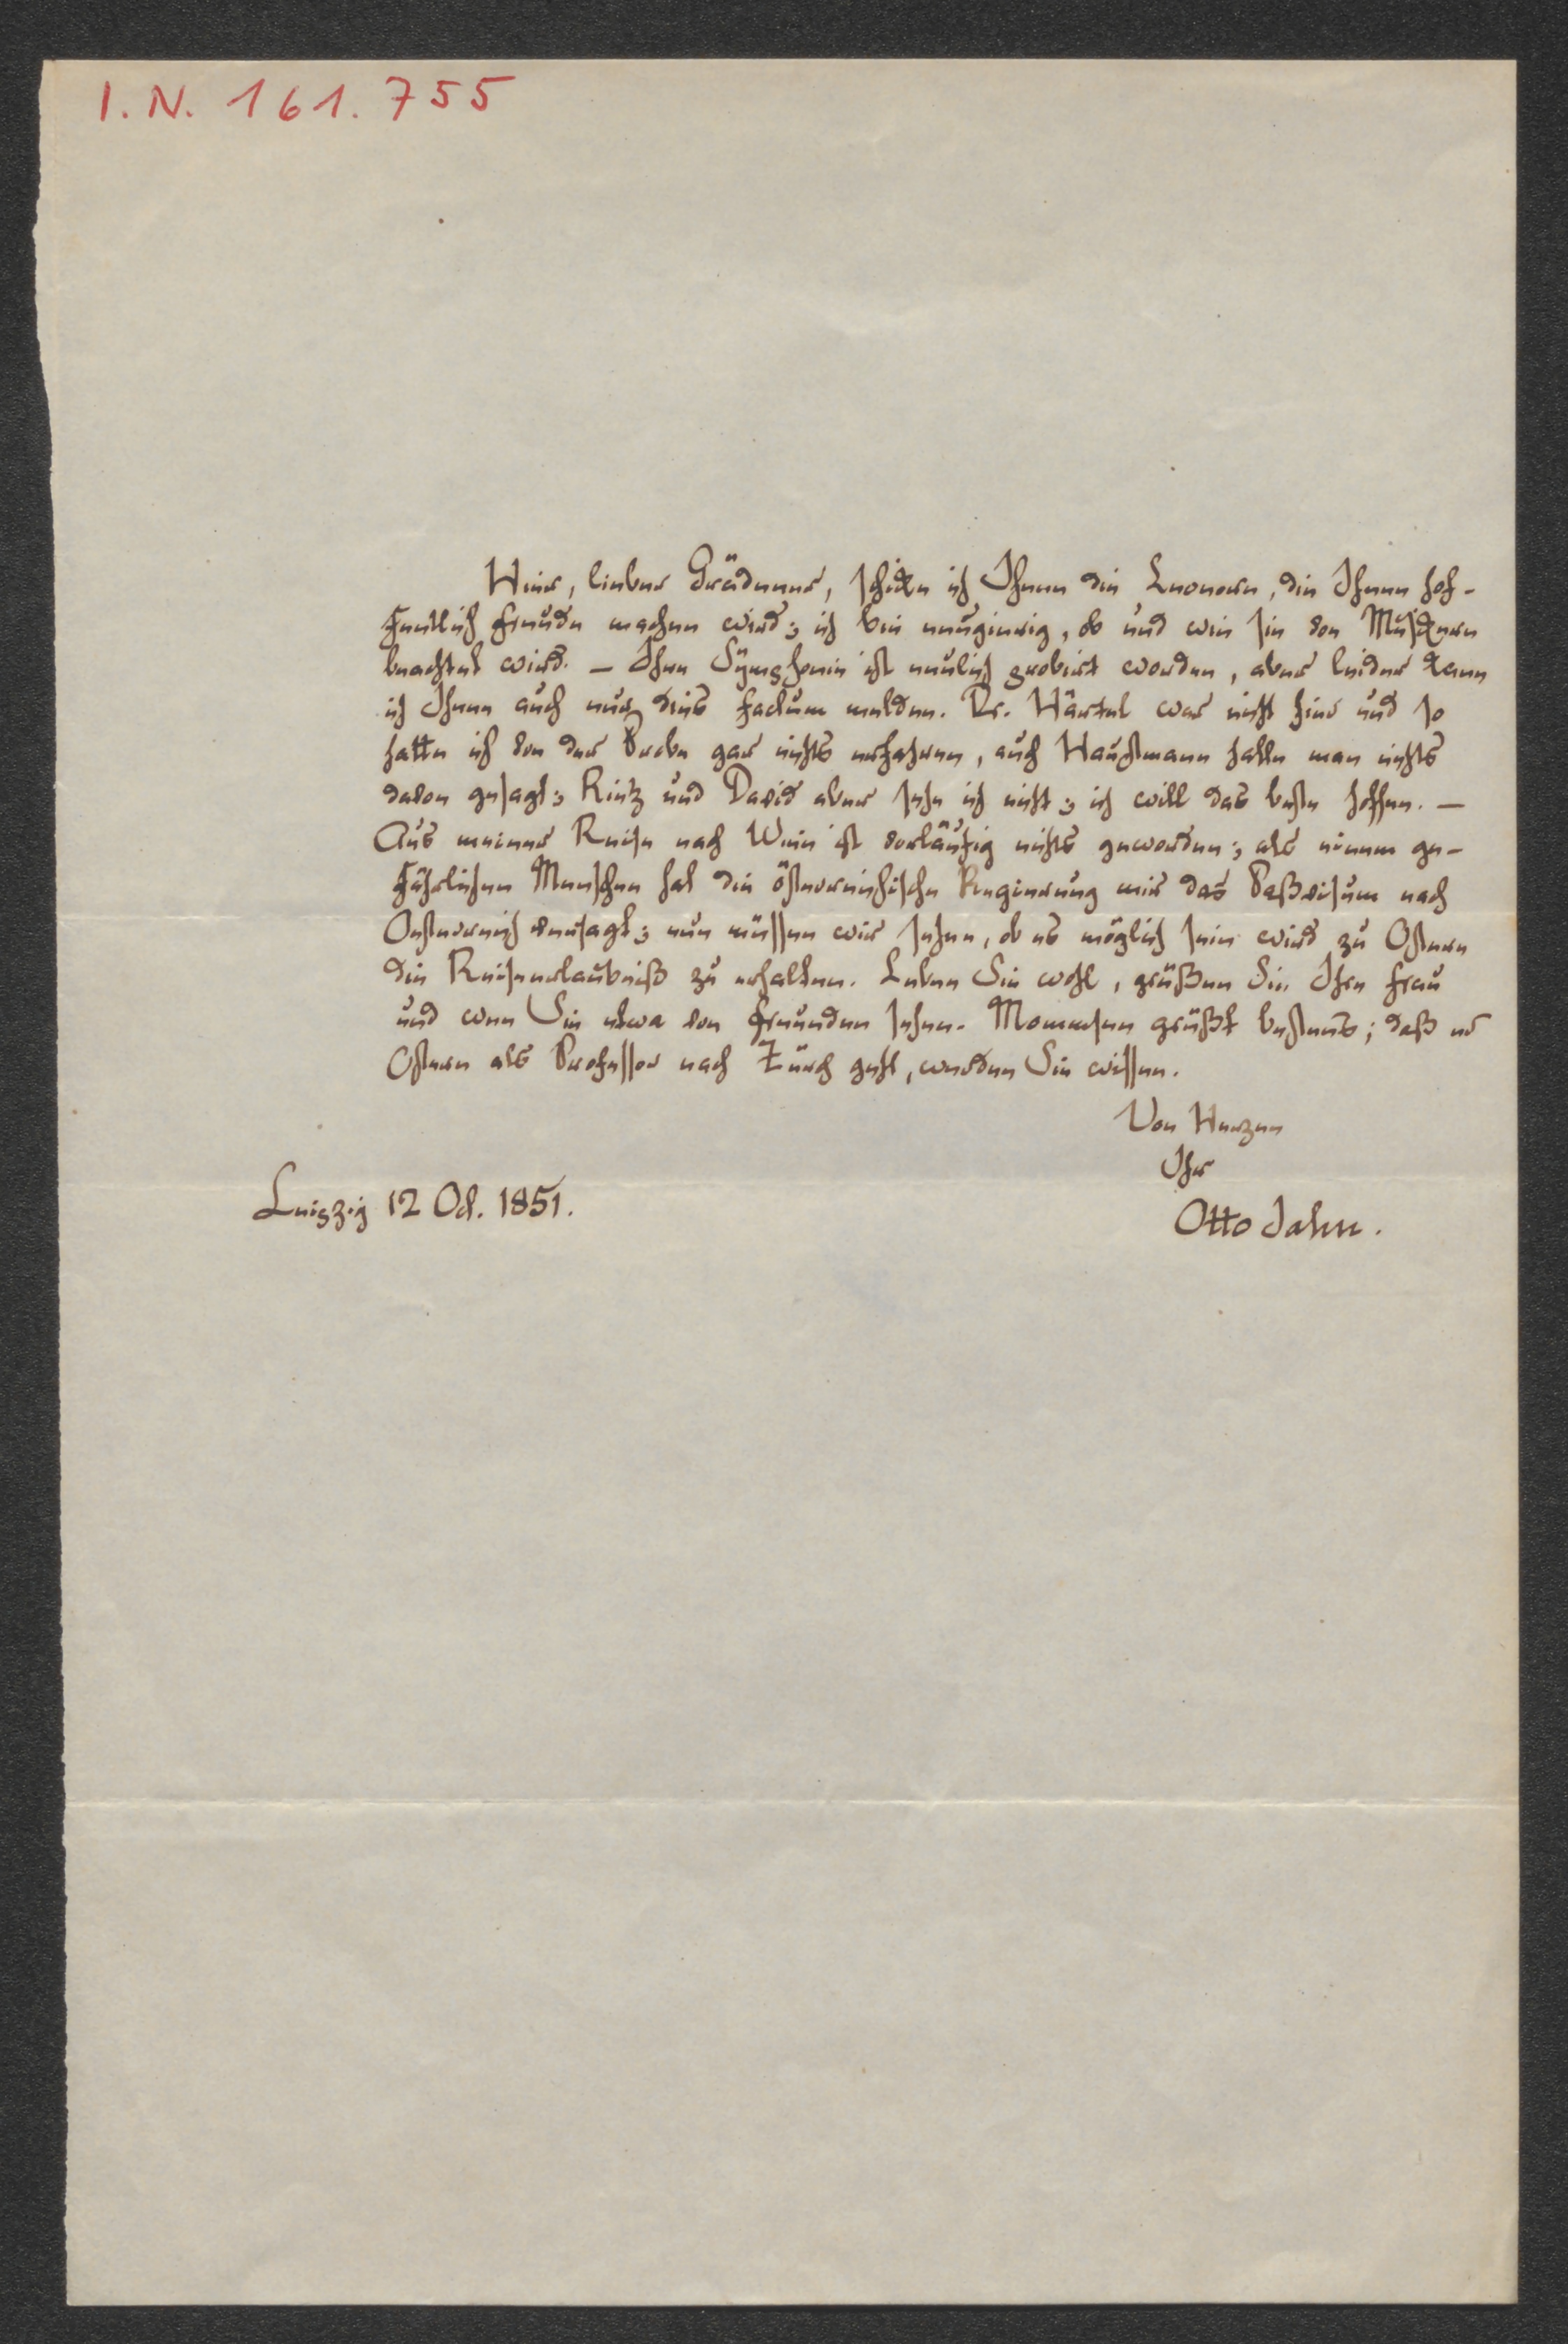 I. N. 161.755
Hier, lieber Grädener, schicke ich Ihnen die Leonore, die Ihnen hof-
fentlich Freude machen wird; ich bin neugierig, ob und wie sie von Musikern
beachtet wird. – Ihre Symphonie ist neulich probirt worden, aber leider kann
ich Ihnen auch nur dies Factum melden. Dr. Härtel war nicht hier und so
hatte ich von der Probe gar nichts erfahren, auch Hauptmann hatte man nichts
davon gesagt; Rietz und David aber sehe ich nicht; ich will das beste hoffen. –
Aus meiner Reise nach Wien ist vorläufig nichts geworden; als einem ge-
fährlichen Menschen hat die österreichische Regierung mir das Paßvisum nach
Oesterreich versagt; nun müssen wir sehen, ob es möglich sein wird zu Ostern
die Reiseerlaubniß zu erhalten. Leben Sie wohl, grüßen Sie Ihre Frau
und wen Sie etwa von Freunden sehen. Mommsen grüßt bestens; daß er
Ostern als Professor nach Zürch geht, werden Sie wissen.
Von Herzen
Ihr
Leipzig 12 Oct. 1851.
Otto Jahn.